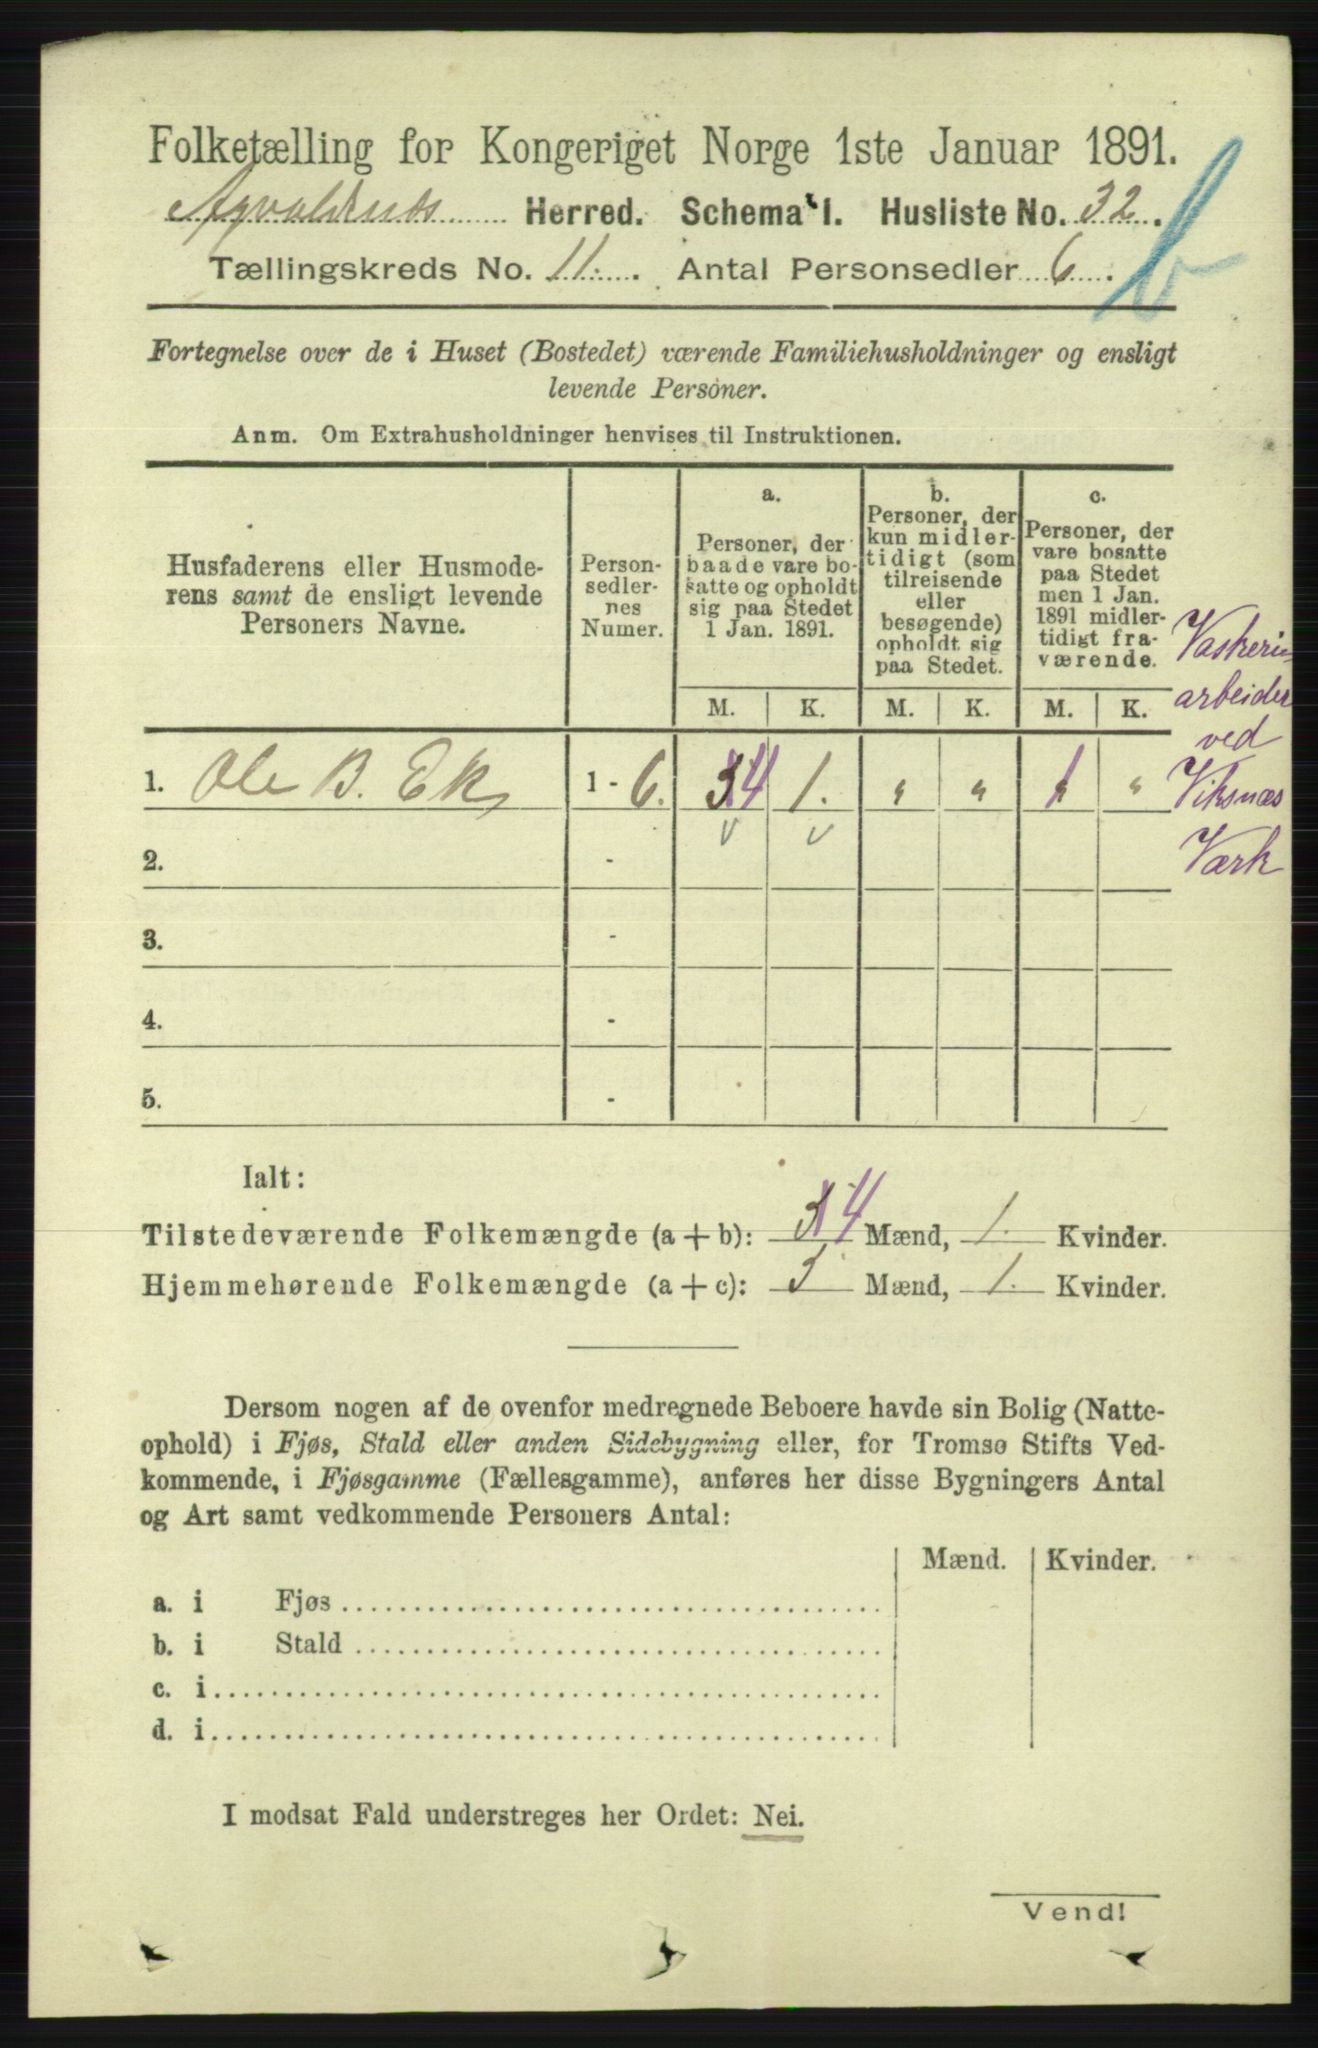 Folketælling for Kongeriget Norge 1ste Januar 1891.
Herred. Schema 1. Husliste No. 32.
Tællingskreds No. 11. Antal Personsedler 6.
Fortegnelse over de i Huset (Bostedet) værende Familiehusholdninger og ensligt
levende Personer.
Anm. Om Extrahusholdninger henvises til Instruktionen.
Husfaderens eller Husmode-
rens samt de ensligt levende
Personers Navne.
Person-
sedler-
nes
Numer.
a.
Personer, der
baade vare bo-
satte og opholdt
sig paa Stedet
1 Jan. 1891.
b.
Personer, der
kun midler-
tidigt (som
tilreisende
eller
besøgende)
opholdt sig
paa Stedet.
c.
Personer, der
vare bosatte
paa Stedet
men 1 Jan.
1891 midler-
tidigt fra-
værende.
M. K. M. K. M. K.
1. Ole B. Ek 1 - 6. 4 1. " " 1 "
2. -
3. -
4. -
5. -
Vaskeri-
arbeider
ved
Viksnæs
Værk
Ialt:
Tilstedeværende Folkemængde (a + b): 4 Mænd, 1. Kvinder.
Hjemmehørende Folkemængde (a + c): 5 Mænd, 1. Kvinder.
Dersom nogen af de ovenfor medregnede Beboere havde sin Bolig (Natte-
ophold) i Fjøs, Stald eller anden Sidebygning eller, for Tromsø Stifts Ved-
kommende, i Fjøsgamme (Fællesgamme), anføres her disse Bygningers Antal
og Art samt vedkommende Personers Antal:
Mænd. Kvinder.
a. i Fjøs
b. i Stald
c. i
d. i
I modsat Fald understreges her Ordet: Nei.
Vend!